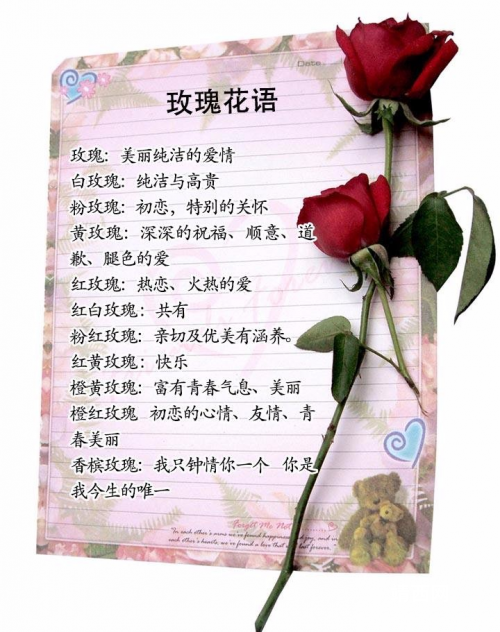 Date
玫瑰花语
玫瑰：美丽纯洁的爱情
白玫瑰：纯洁与高贵
粉玫瑰：初恋，特别的关怀
黄玫瑰：深深的祝福、顺意、道
歉、腿色的爱
红玫瑰：热恋、火热的爱
红白玫瑰：共有
粉红玫瑰：亲切及优美有涵养。
红黄玫瑰：快乐
橙黄玫瑰：富有青春气息、美丽
橙红玫瑰 初恋的心情、友情、青
春美丽
香槟玫瑰：我只钟情你一个 你是
我今生的唯一
Forget Me Not
"In each other's arms we've found happiness and joy, and in
each other's hearts, we've found a love that will last forever."